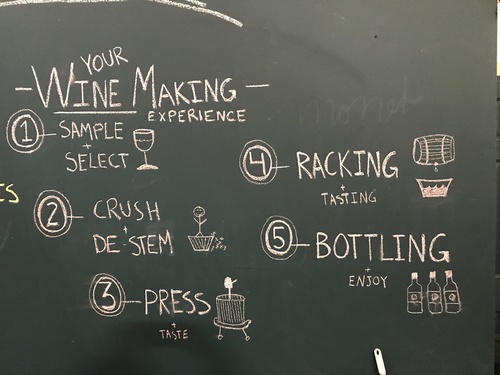 YOUR
- WINE MAKING -
EXPERIENCE
1 SAMPLE
+
SELECT
2 CRUSH
+
DE-STEM
3 PRESS
+
TASTE
4 RACKING
+
TASTING
5 BOTTLING
+
ENJOY
ES